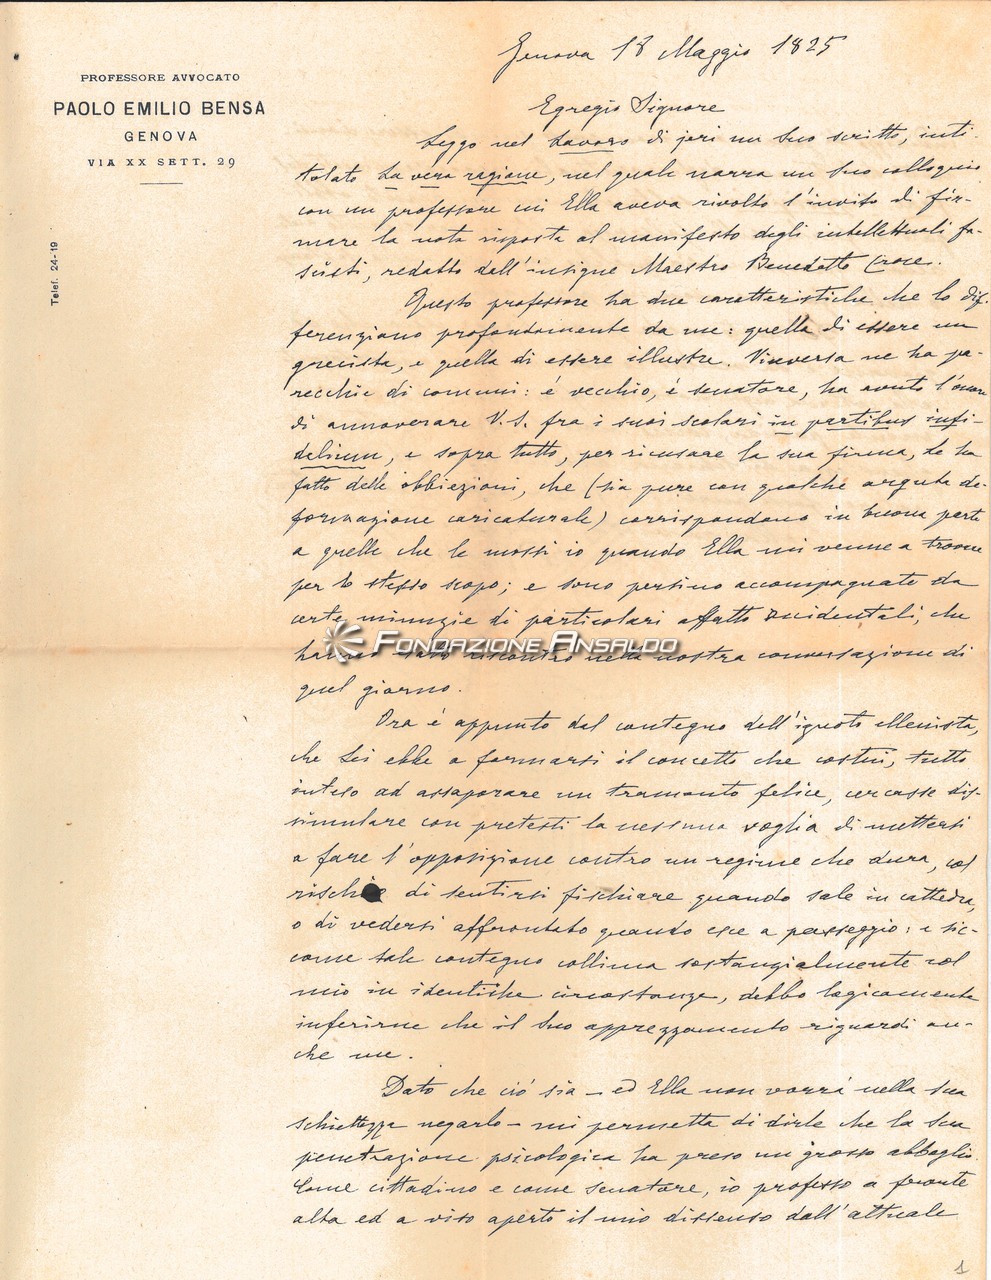 Genova 18 Maggio 1825
PROFESSORE AVVOCATO
PAOLO EMILIO BENSA
GENOVA
VIA XX SETT. 29
Telef. 24-19
Egregio Signore
Leggo nel Lavoro di jeri un Suo scritto, inti-
tolato La vera ragione, nel quale narra un Suo colloquio
con un professore cui Ella aveva rivolto l'invito di fir-
mare la nota risposta al manifesto degli intellettuali fa-
scisti, redatto dall'insigne Maestro Benedetto Croce.
Questo professore ha due caratteristiche che lo dif-
ferenziano profondamente da me: quella di essere un
grecista, e quella di essere illustre. Viceversa ne ha pa-
recchie di comuni: è vecchio, è senatore, ha avuto l'onore
di annoverare V.S. fra i suoi scolari in partibus infi-
delium, e sopra tutto, per ricusare la sua firma, Le ha
fatto delle obbiezioni, che (sia pure con qualche arguta de-
formazione caricaturale) corrispondono in buona parte
a quelle che le mossi io quando Ella mi venne a trovare
per lo stesso scopo; e sono persino accompagnate da
certe minuzie di particolari affatto accidentali, che
hanno riscontro nella nostra conversazione di
FONDAZIONE ANSALDO
quel giorno.
Ora è appunto dal contegno dell'ignoto ellenista,
che Lei ebbe a formarsi il concetto che costui, tutto
inteso ad assaporare un tramonto felice, cercasse dis-
simulare con pretesti la nessuna voglia di mettersi
a fare l'opposizione contro un regime che dura, col
rischio di sentirsi fischiare quando sale in cattedra,
o di vedersi affrontato quando esce a passeggio: e sic-
come tale contegno collima sostanzialmente col
mio in identiche circostanze, debbo logicamente
inferirne che il Suo apprezzamento riguardi an-
che me.
Dato che ciò sia – ed Ella non vorrà nella sua
schiettezza negarlo – mi permetta di dirle che la sua
penetrazione psicologica ha preso un grosso abbaglio.
Come cittadino e come senatore, io professo a fronte
alta ed a viso aperto il mio dissenso dall'attuale
1